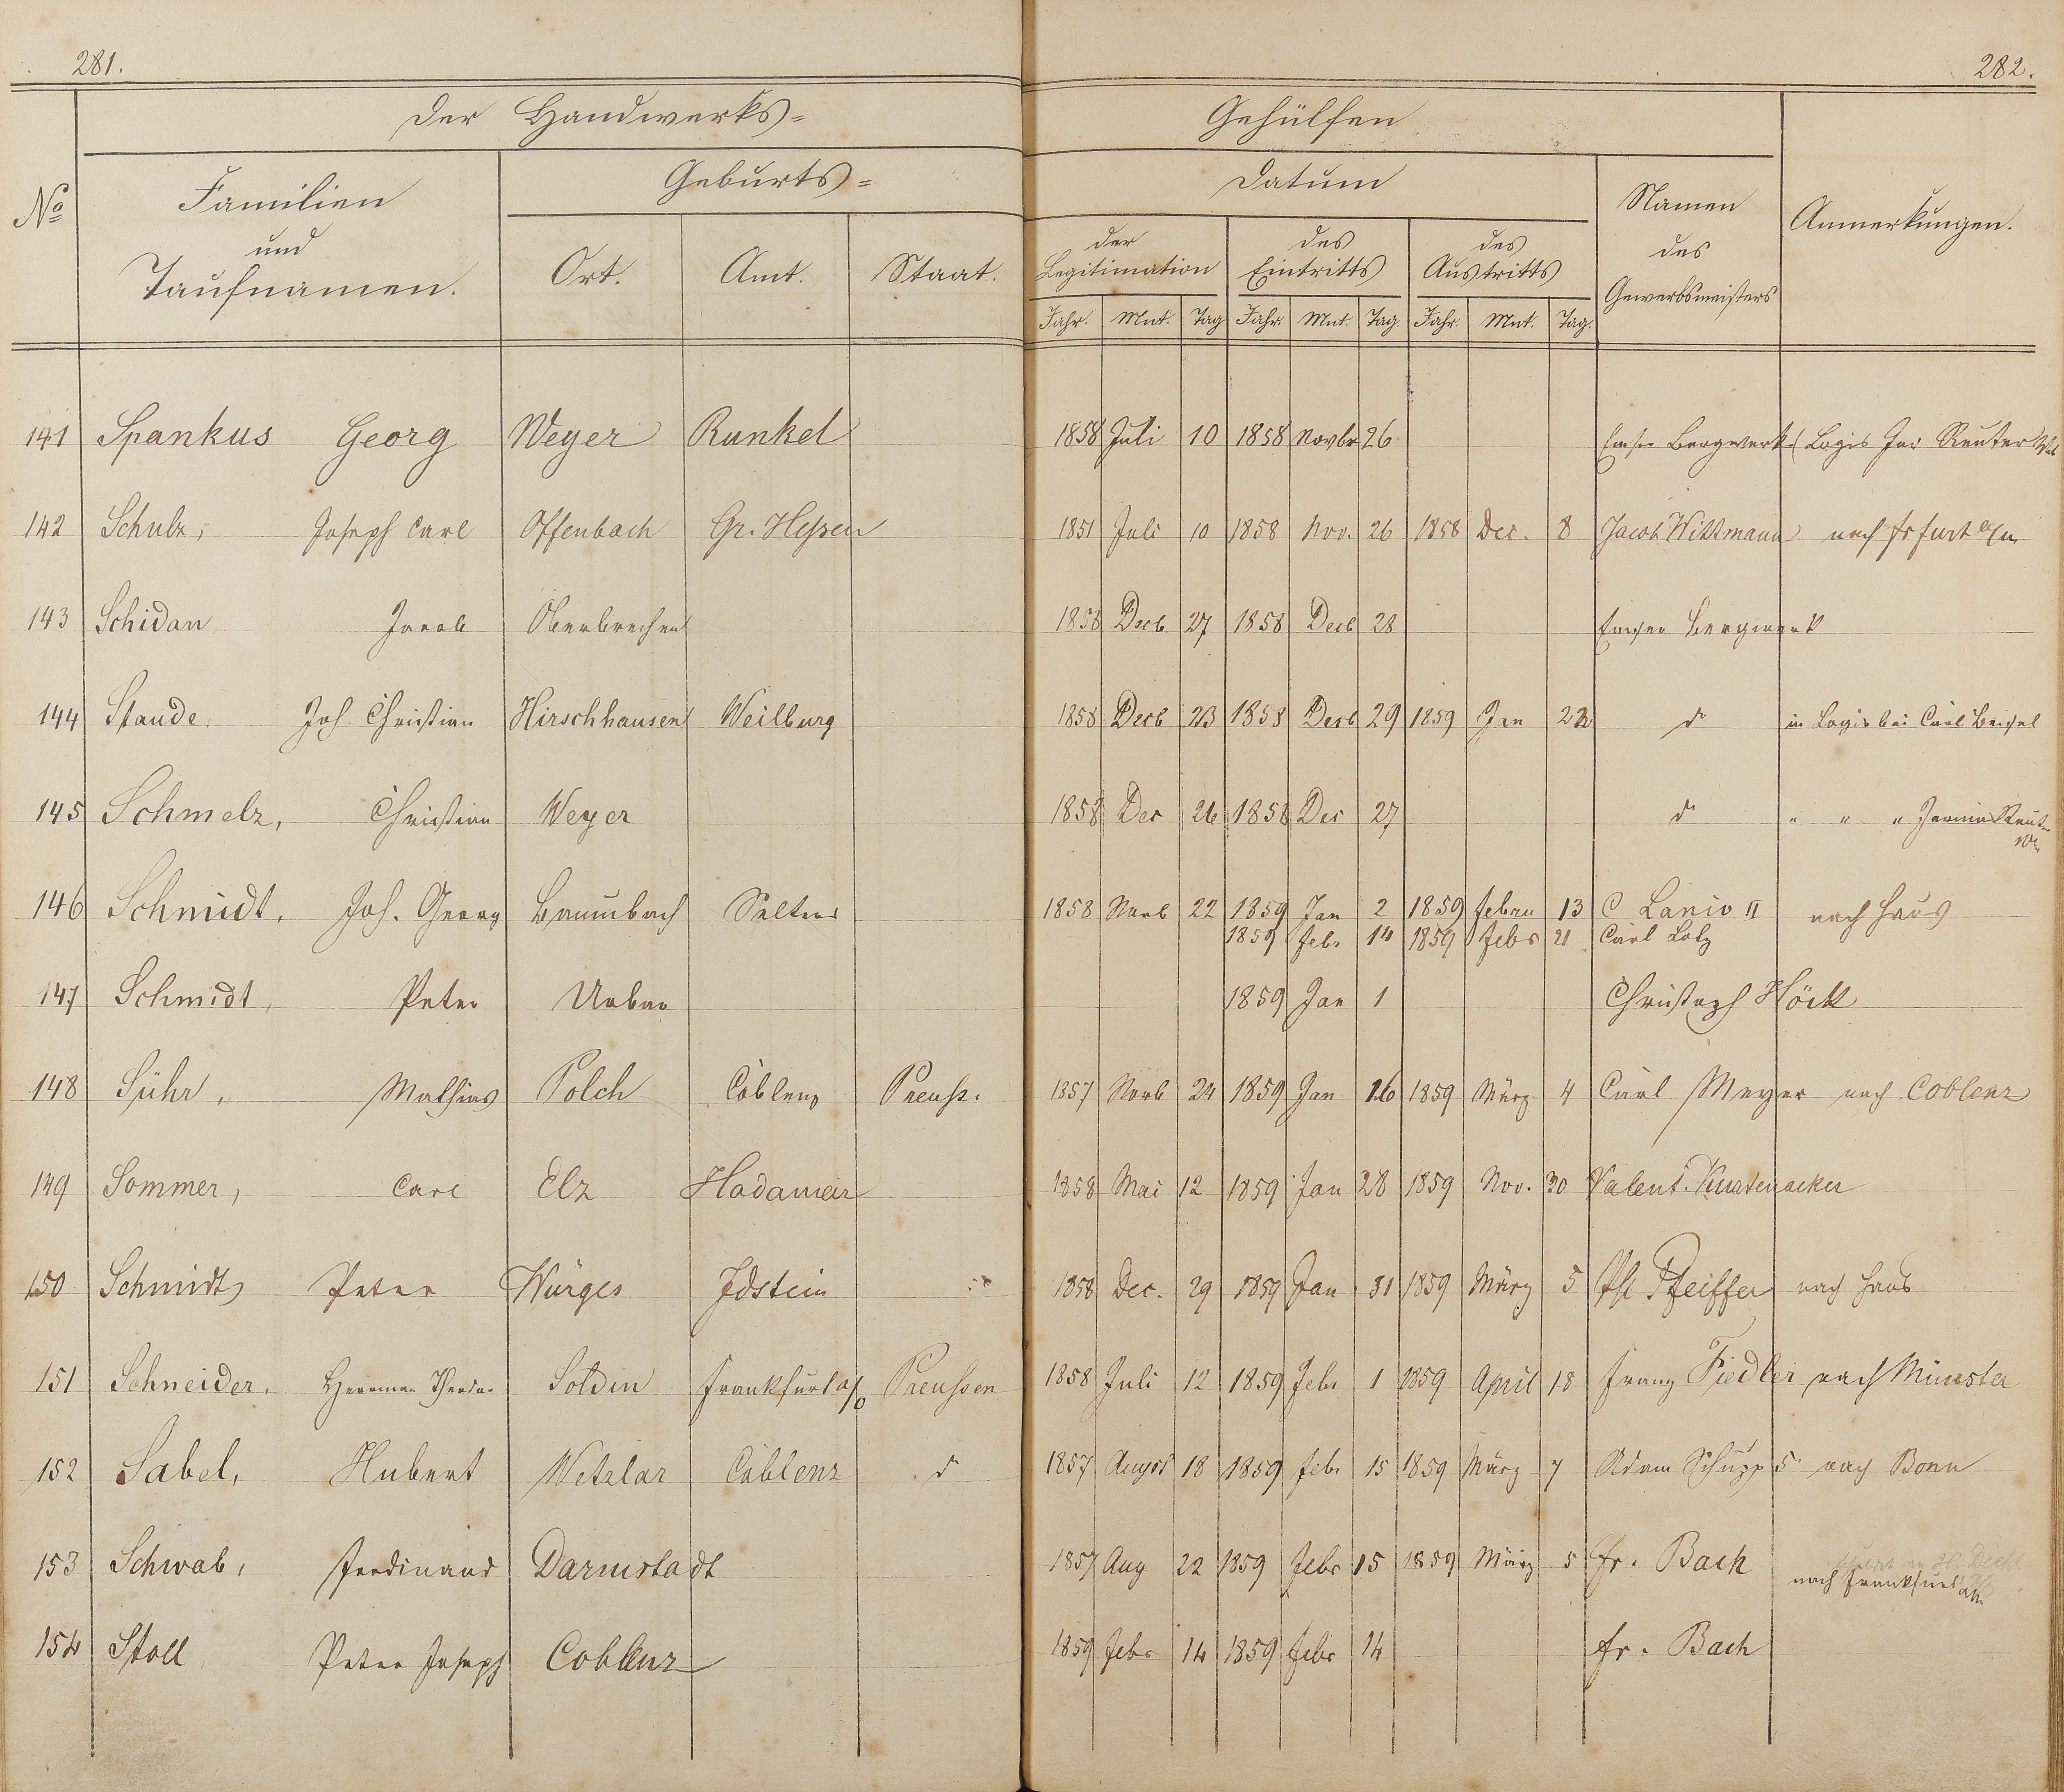 281.
282.
Der Handwerks=
Gehülfen
No
Familien
und
Taufnamen.
Geburts=
Ort. Amt. Staat.
Datum
der Legitimation
des Eintritts
des Austritts
Jahr. Mnt. Tag Jahr. Mnt. Tag. Jahr. Mnt. Tag.
Namen
des
Gewerbsmeisters
Anmerkungen.
141 Spankus Georg Weyer Runkel 1858 Juli 10 1858 Novbr 26 Emser Bergwerk Logis Reuter
142 Schulz, Joseph Carl Offenbach Gr. Hessen 1851 Juli 10 1858 Nov. 26 1858 Dec. 8 Jacob Wittmann nach
143 Schidan Jacob Oberbrechen 1858 Decb 27 1858 Decb 28 Emser Bergwerk
144 Staude, Joh Christian Hirschhausen Weilburg 1858 Decb 23 1858 Decb 29 1859 Jan 22 do in Logis bei Carl
145 Schmelz, Christian Weyer 1858 Dec 26 1858 Dec 27 do " " "
146 Schmidt, Joh. Georg Baumbach Selters 1858 Novb 22 1859 Jan 2 1859 Febru 13 C Lanio II nach Haus
1859 Febr 14 1859 Febr 21 Carl Lotz
147 Schmidt, Peter Urbar 1859 Jan 1 Christoph Höck
148 Sühr, Mathias Polch Coblenz Preuss. 1857 Novb 24 1859 Jan 16 1859 März 4 Carl Meyer nach Coblenz
149 Sommer, Carl Elz Hadamar 1858 Mai 12 1859 Jan 28 1859 Nov. 30 Valent. Kurtenacker
150 Schmidt, Peter Würges Idstein 1858 Dec. 29 1859 Jan 31 1859 März 5 Ph Pfeiffer nach Haus
151 Schneider, Herrman Theodor Soldin Frankfurt a/o Preußen 1858 Juli 12 1859 Febr 1 1859 April 18 Franz Fiedler nach Münster
152 Sabel, Hubert Wetzlar Coblenz do 1857 Augst 18 1859 Febr 15 1859 März 7 Adam Schupp 5. nach Bonn
153 Schwab, Ferdinand Darmstadt 1857 Aug 22 1859 Febr 15 1859 März 5 Fr. Bach nach Frankfurt a/m
154 Stoll Peter Joseph Coblenz 1859 Febr 14 1859 Febr 14 Fr. Bach